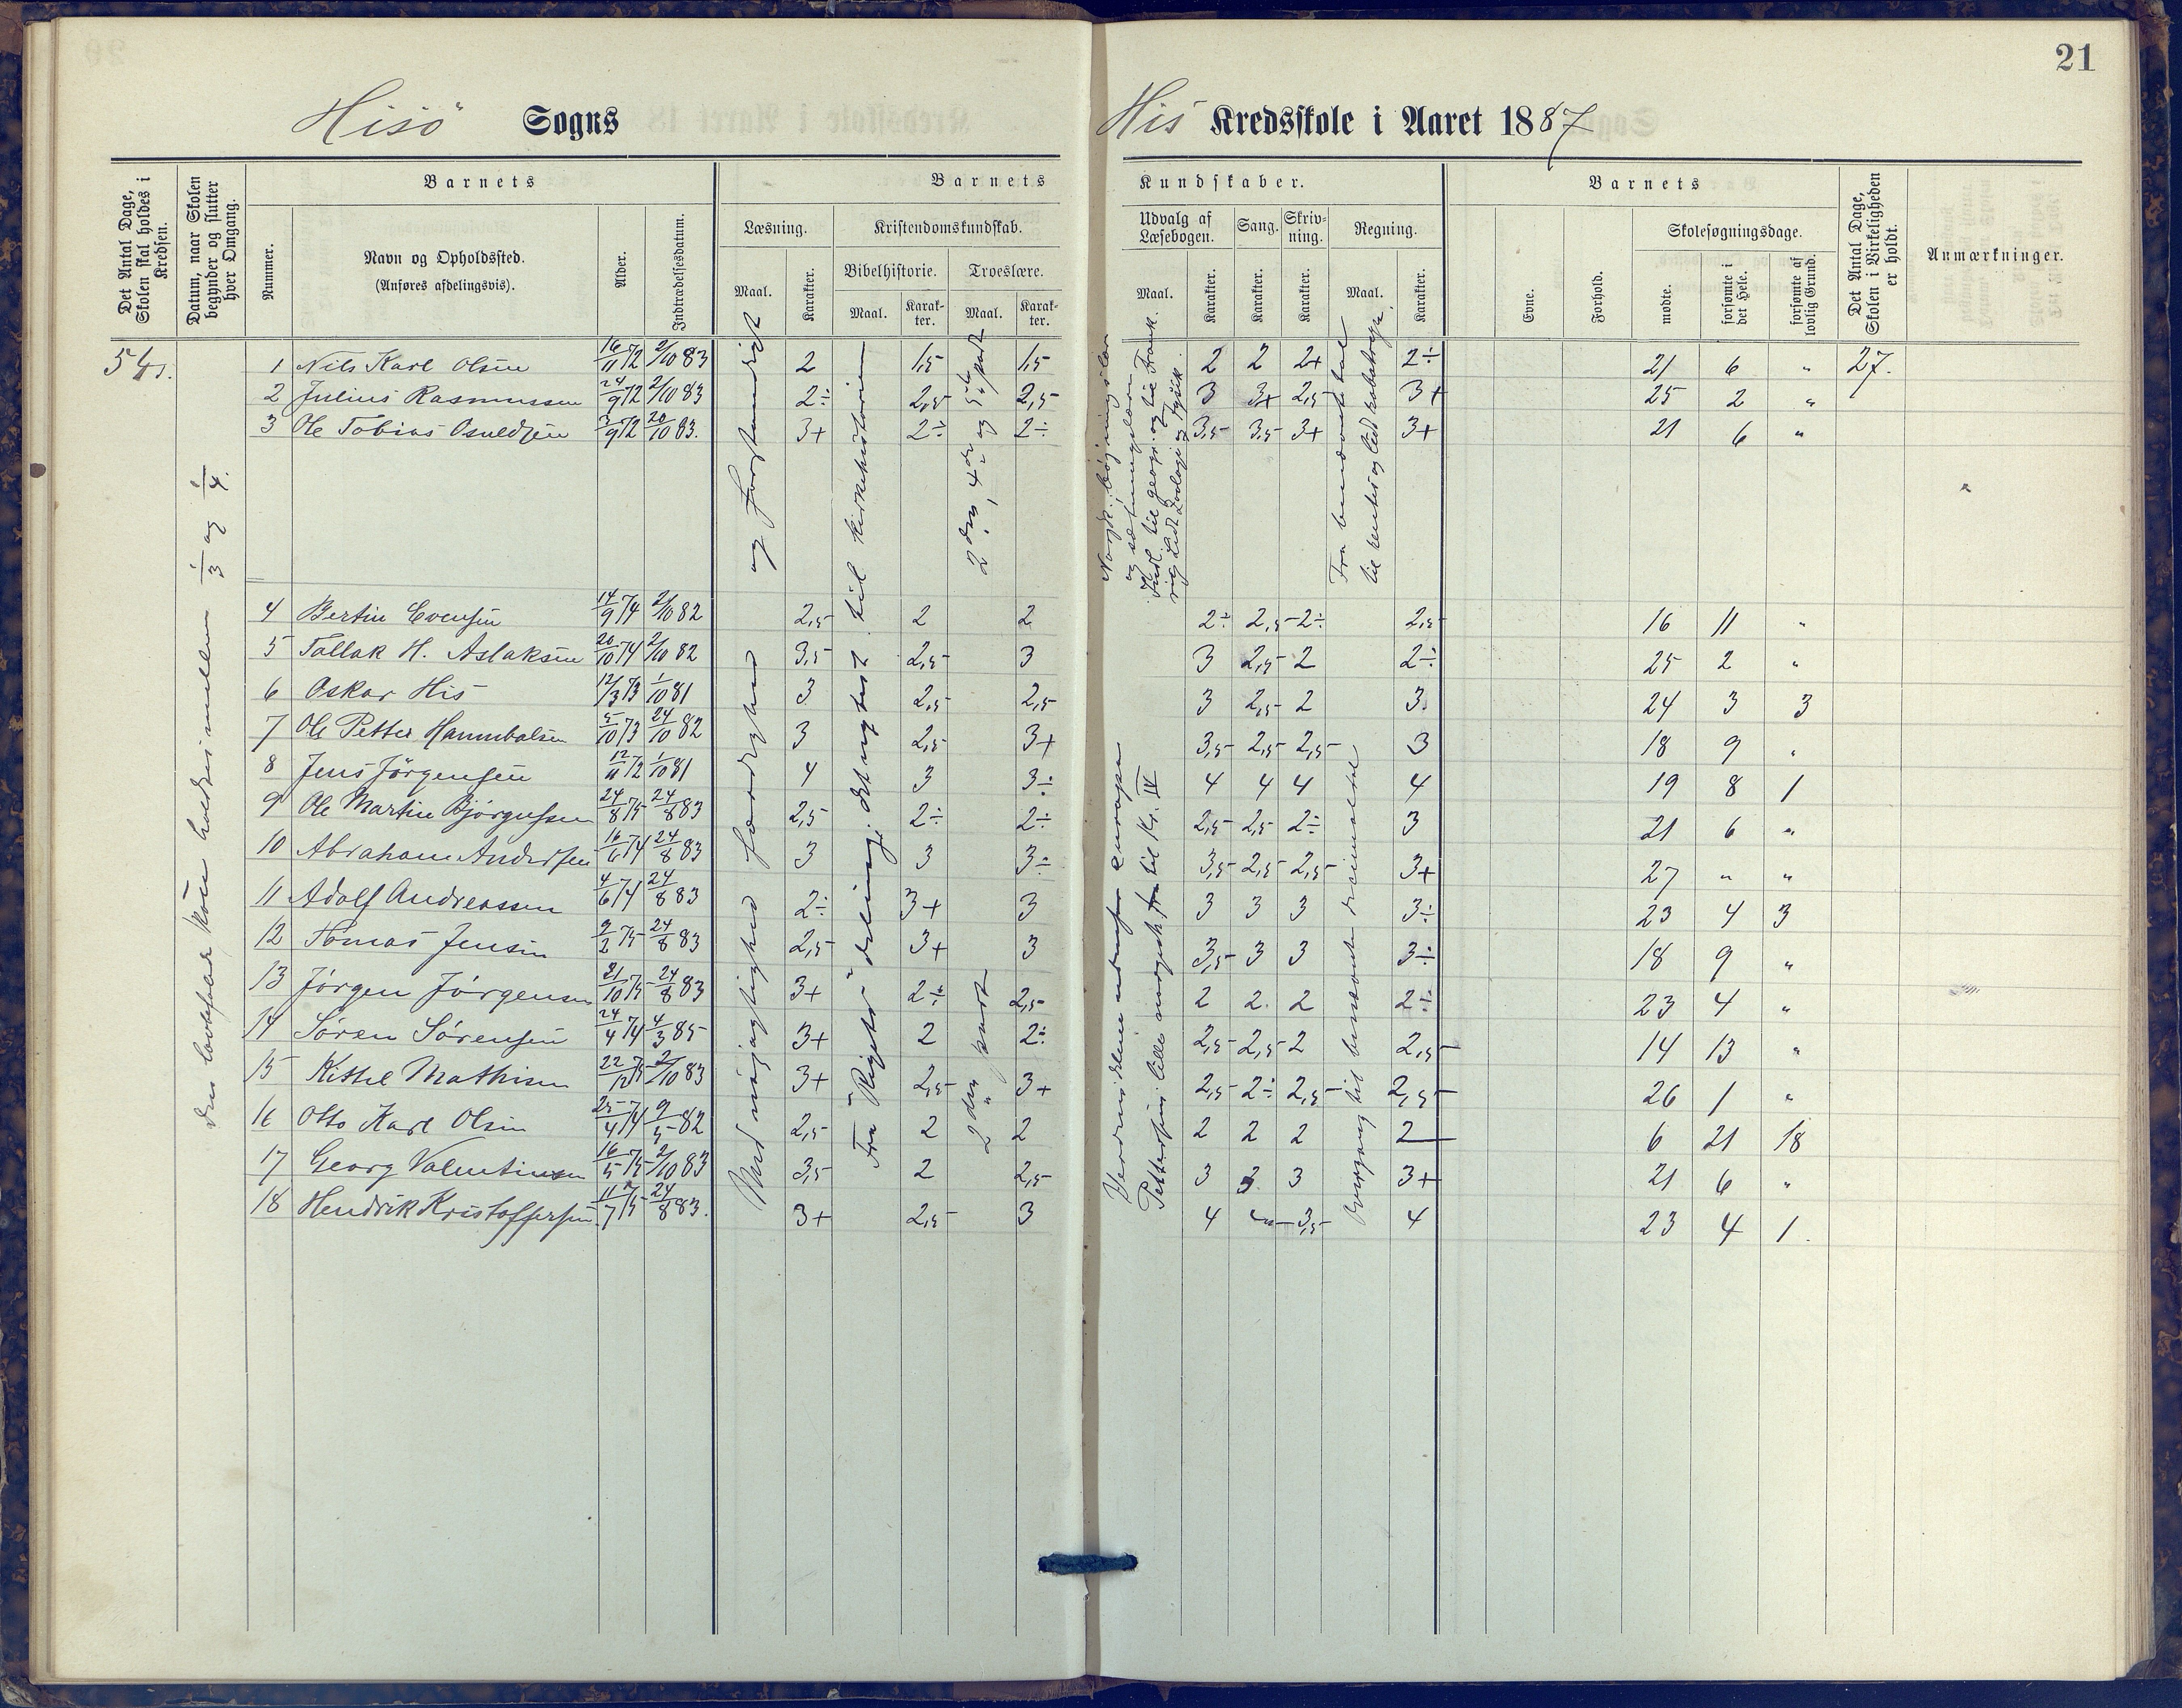 21
Hisö Sogns His Kredsskole i Aaret 1887
Det Antal Dage, Skolen skal holdes i Kredsen.
Datum, naar Skolen begynder og slutter hver Omgang.
Barnets
Nummer.
Navn og Opholdssted.
(Anføres afdelingsvis).
Alder.
Indtrædelsesdatum.
Barnets Kundskaber.
Læsning.
Maal.
Karakter.
Kristendomskundskab.
Bibelhistorie.
Maal.
Karakter.
Troeslære.
Maal.
Karakter.
Udvalg af Læsebogen.
Maal.
Karakter.
Sang.
Karakter.
Skrivning.
Karakter.
Regning.
Maal.
Karakter.
Barnets
Evne.
Forhold.
Skolesøgningsdage.
mødte.
forsømte i det Hele.
forsømte af lovlig Grund.
Det Antal Dage, Skolen i Virkeligheden er holdt.
Anmærkninger.
54
1 Nils Karl Olsen 16/11 72 2/10 83 2 1,5 1,5 2 2 2+ 2÷ 21 6 " 27.
2 Julius Rasmussen 24/9 72 2/10 83 2÷ 2,5 2,5 3 3+ 2,5 3+ 25 2 "
3 Ole Tobias Osuldsen 3/9 72 20/10 83. 3+ 2÷ 2÷ 3,5 3,5 3+ 3+ 21 6 "
4 Bertin Evensen 14/9 74 2/10 82 2,5 2 2 2÷ 2,5 2÷ 2,5 16 11 "
5 Tallak H. Aslaksen 20/10 74 2/10 82 3,5 2,5 3 3 2,5 2 2÷ 25 2 "
6 Oskar His 12/3 73 1/10 81 3 2,5 2,5 3 2,5 2 3 24 3 3
7 Ole Petter Hannibalsen 5/10 73 24/10 82 3 2,5 3+ 3,5 2,5 2,5 3 18 9 "
8 Jens Jörgensen 12/11 72 1/10 81 4 3 3÷ 4 4 4 4 19 8 1
9 Ole Martin Bjørgussen 24/8 75 24/8 83 2,5 2÷ 2÷ 2,5 2,5 2÷ 3 21 6 "
10 Abraham Andersen 16/6 74 24/8 83 3 3 3÷ 3,5 2,5 2,5 3+ 27 " "
11 Adolf Andreassen 4/6 74 24/8 83 2÷ 3+ 3 3 3 3 3÷ 23 4 3
12 Tomas Jensen 9/2 75 24/8 83 2,5 3+ 3 3,5 3 3 3÷ 18 9 "
13 Jörgen Jörgensen 21/10 75 24/8 83 3+ 2÷ 2,5 2 2 2 2÷ 23 4 "
14 Sören Sörensen 24/4 74 4/3 85 3+ 2 2÷ 2,5 2,5 2 2,5 14 13 "
15 Kittel Mathisen 22/12 75 2/10 83 3+ 2,5 3+ 2,5 2÷ 2,5 2,5 26 1 "
16 Otto Karl Olsen 25/4 74 9/5 82 2,5 2 2 2 2 2 2 6 21 18
17 Georg Valentinsen 16/5 75 2/10 83 3,5 2 2,5 3 3 3 3+ 21 6 "
18 Hendrik Kristoffersen 11/7 75 24/8 83. 3+ 2,5 3 4 " 3,5 4 23 4 1.
Den lovbefalede skole holdes imellem 1/3 og 1/4.
Med nöjagtighed færdighed og forstandighet
Fra "Rigets" deling; det nytest. til kirkehistorien
2den part
2den, 4de og 5te part
Verdensdelene udenfor europa
Pettersens lille norgesh. til Kr. IV
Overgang til benævnte decimaltal
Fra benævnte tal